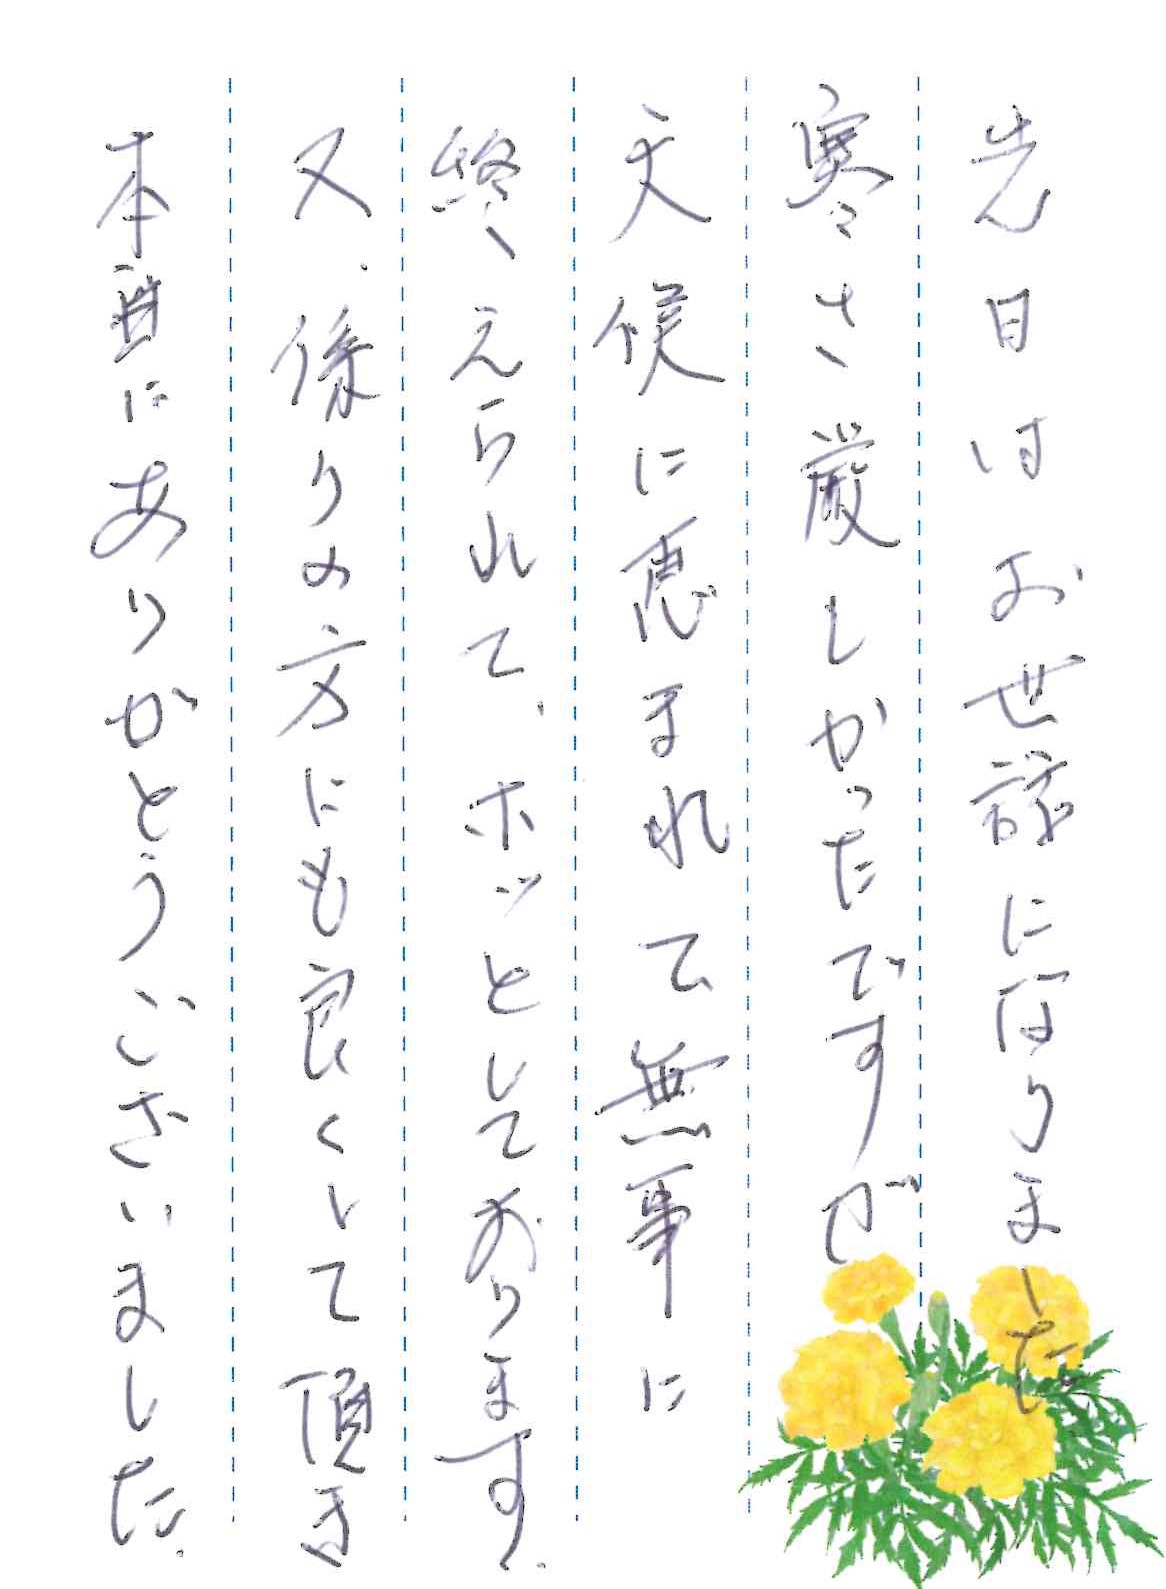 先日はお世話になりました
寒さ厳しかったですが
天候に恵まれて無事に
終えられて、ホッとしております。
又、係りの方にも良くして頂き
本当にありがとうございました。